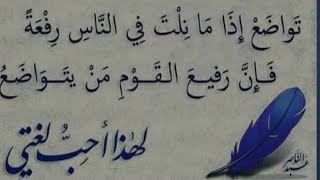 تَوَاضَعْ إِذَا مَا نِلْتَ فِي النَّاسِ رِفْعَةً
فَإِنَّ رَفِيعَ الْقَوْمِ مَنْ يَتَوَاضَعُ
لهٰذا أحبُّ لغتي
عبد الناصر